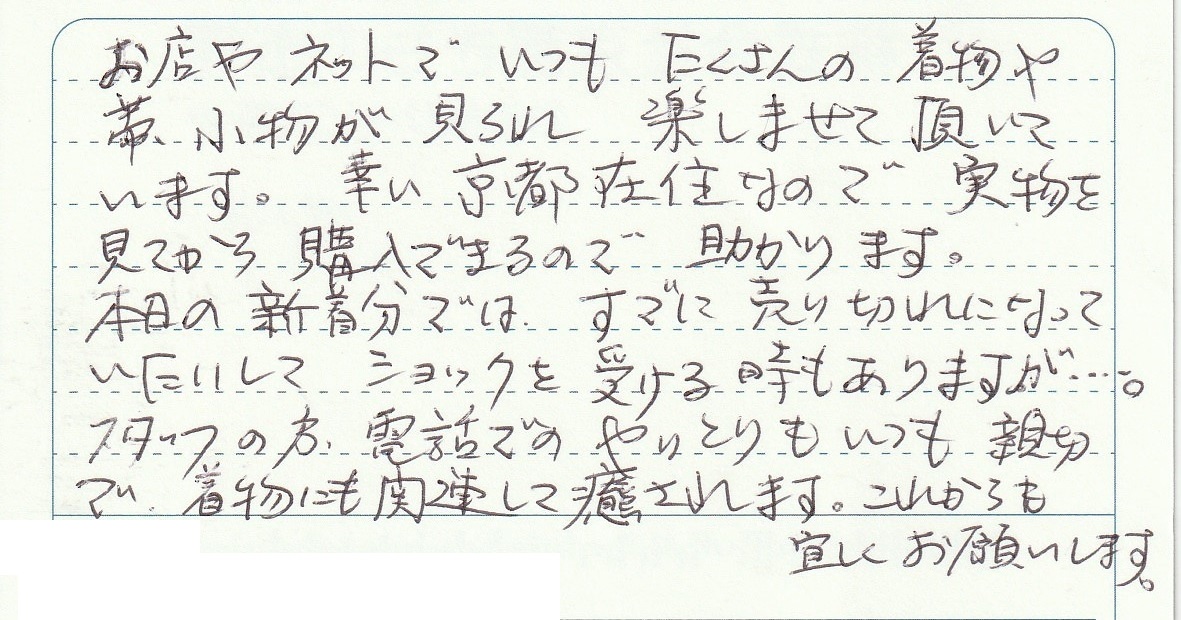 お店や ネットで いつも たくさんの 着物や
帯、小物が 見られ 楽しませて 頂いて
います。 幸い 京都在住なので 実物を
見てから 購入できるので 助かります。
本日の 新着分では、すでに 売り切れになって
いたりして ショックを 受ける時もありますが…。
スタッフの方、電話での やりとりも いつも 親切
で、着物にも関連して癒されます。これからも
宜しくお願いします。